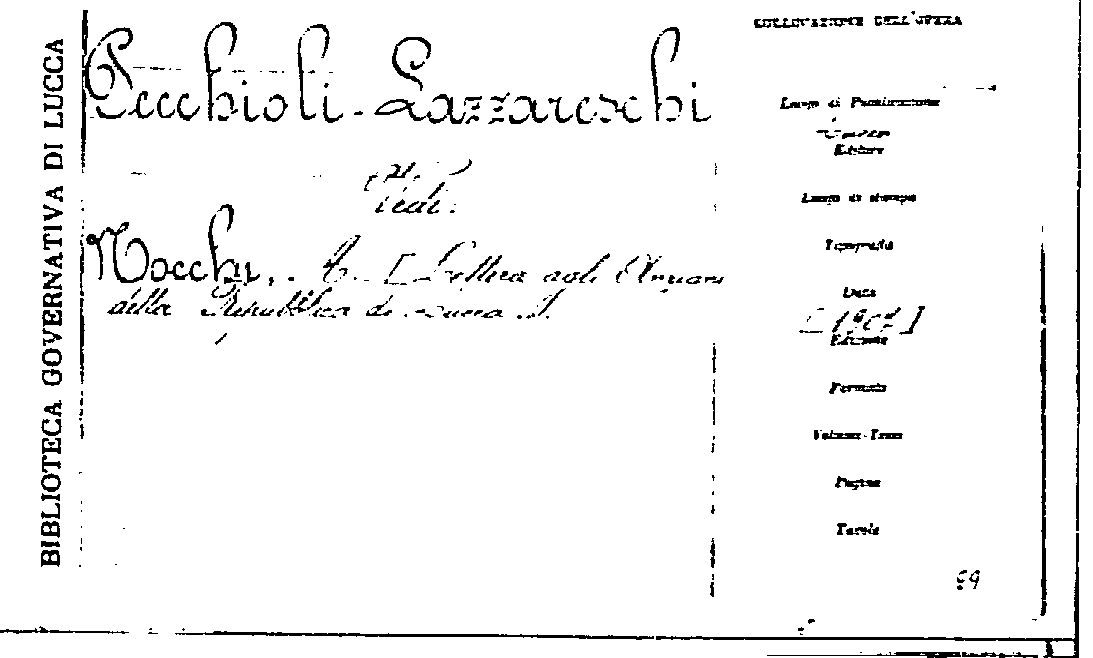 BIBLIOTECA GOVERNATIVA DI LUCCA
Pecchioli-Lazzareschi
Vedi:
Nocchi, A. [Lettera agli Anziani
della Repubblica di Lucca].
COLLOCAZIONE DELL'OPERA
Luogo di Pubblicazione
Editore
Luogo di stampa
Tipografia
Data
[1907]
Edizione
Formato
Volume-Tomo
Pagine
Tavole
59